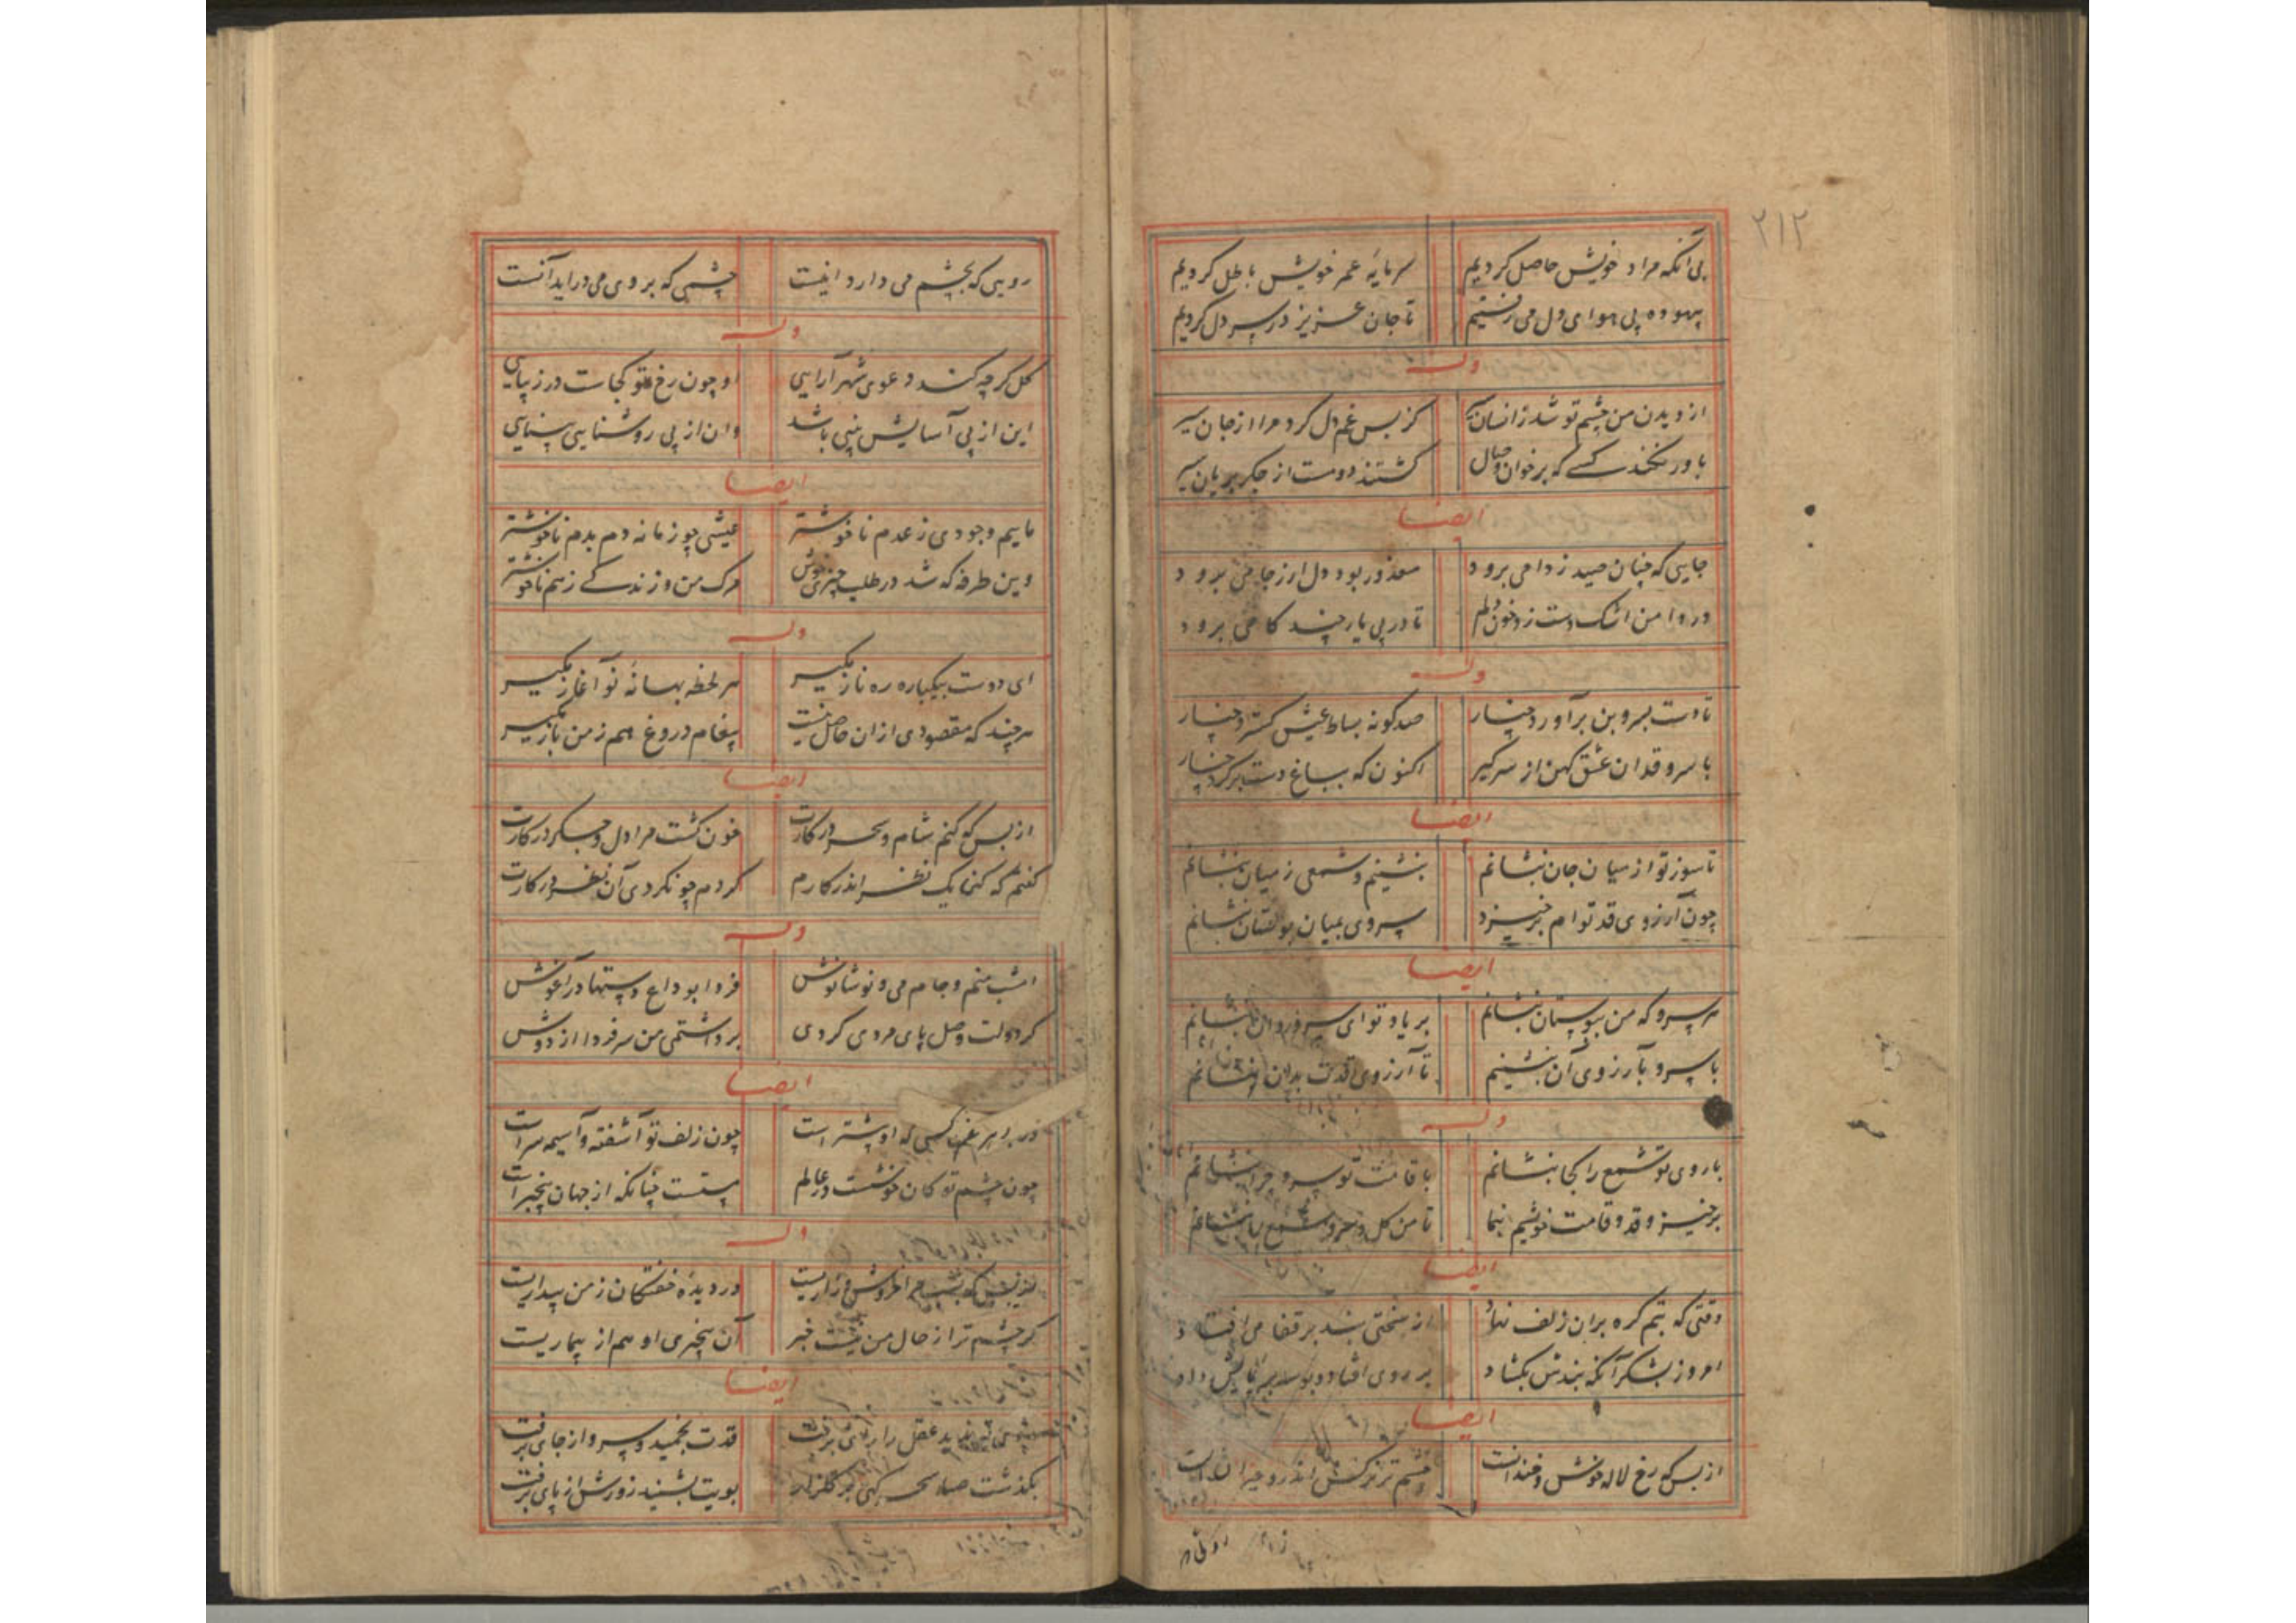 ۲۱۲
بی آنکه مراد خویش حاصل کردیم سرمایه عمر خویش باطل کردیم
بیهوده پی هوای دل می رفتیم تا جان عزیز در سر دل کردیم
وله
از دیدن من چشم تو شد زانسان سیر کز بس غم دل کرد مرا از جان سیر
باور نکند کسی که بر خوان وصال گشتند دو مست از جگر بریان سیر
ایضا
جایی که چنان صید ز دامی برود معذور بود دل ار ز جا می برود
در دامن اشک دست زد خون دلم تا در پی یار چند گامی برود
وله
تا دست بسروبن برآورد چنار صد گونه بساط عیش گسترد چنار
با سرو قدان عشق کهن از سر گیر اکنون که بباغ دست بر کرد چنار
ایضا
تا سوز تو از میان جان بنشانم بنشینم و شمعی ز میان بنشانم
چون آرزوی قد توام برخیزد سروی بمیان بوستان بنشانم
ایضا
هر سرو که من ببوستان بنشانم بر یاد تو ای سرو روان بنشانم
با سرو بآرزوی آن بنشینم تا آرزوی قدت بدان بنشانم
وله
با روی تو شمع را کجا بنشانم با قامت تو سرو چرا بنشانم
برخیز و قد و قامت خویشم بنما تا من گل و سرو و شمع را بنشانم
ایضا
وقتی که بتم گره بران زلف نهاد از سختی بند بر قفا می افتاد
امروز بشکر آنکه بندش بگشاد بر روی افتاد و بوسه بر پایش داد
ایضا
از بس که رخ لاله خوش و خندانست چشم تر نرگس اندرو حیرانست
رویی که بچشم می دارد اینست چشمی که بروی می درآید آنست
وله
گل گرچه کند دعوی شهرآرایی او چون رخ تو کجاست در زیبایی
این از پی آسایش بینی باشد وان از پی روشنایی بینایی
ایضا
ماییم وجودی ز عدم ناخوشتر عیشی چو زمانه دم بدم ناخوشتر
وین طرفه که شد در طلب چیزی خوش مرگ من و زندگی ز هم ناخوشتر
وله
ای دوست بیکباره ره ناز مگیر هر لحظه بهانه نو آغاز مگیر
هر چند که مقصودی ازان حاصل نیست پیغام دروغ هم ز من باز مگیر
ایضا
از بس که کنم شام و سحر در کارت خون گشت مرا دل و جگر در کارت
گفتم که کنی یک نظر اندر کارم کردم چو نکردی آن نظر در کارت
وله
امشب منم و جام می و نوشانوش فردا بوداع دستها در آغوش
گر دولت وصل پای مردی کردی برداشتمی من سر فردا از دوش
ایضا
در غمت کسی که او پیشترست چون زلف تو آشفته و آسیمه سرست
چون چشم تو کان خوشست در عالم مستست چنانکه از جهان بیخبرست
وله
در دیده خفتگان ز من بیداریست
گر چشم ترا از حال من نیست خبر آن بیخبری او هم از بیماریست
ایضا
عقل را رای برفت قدت بچمید و سرو از جای برفت
بگذشت صبا سحرگهی بر گلزار بویت بشنید زو رش از پای برفت